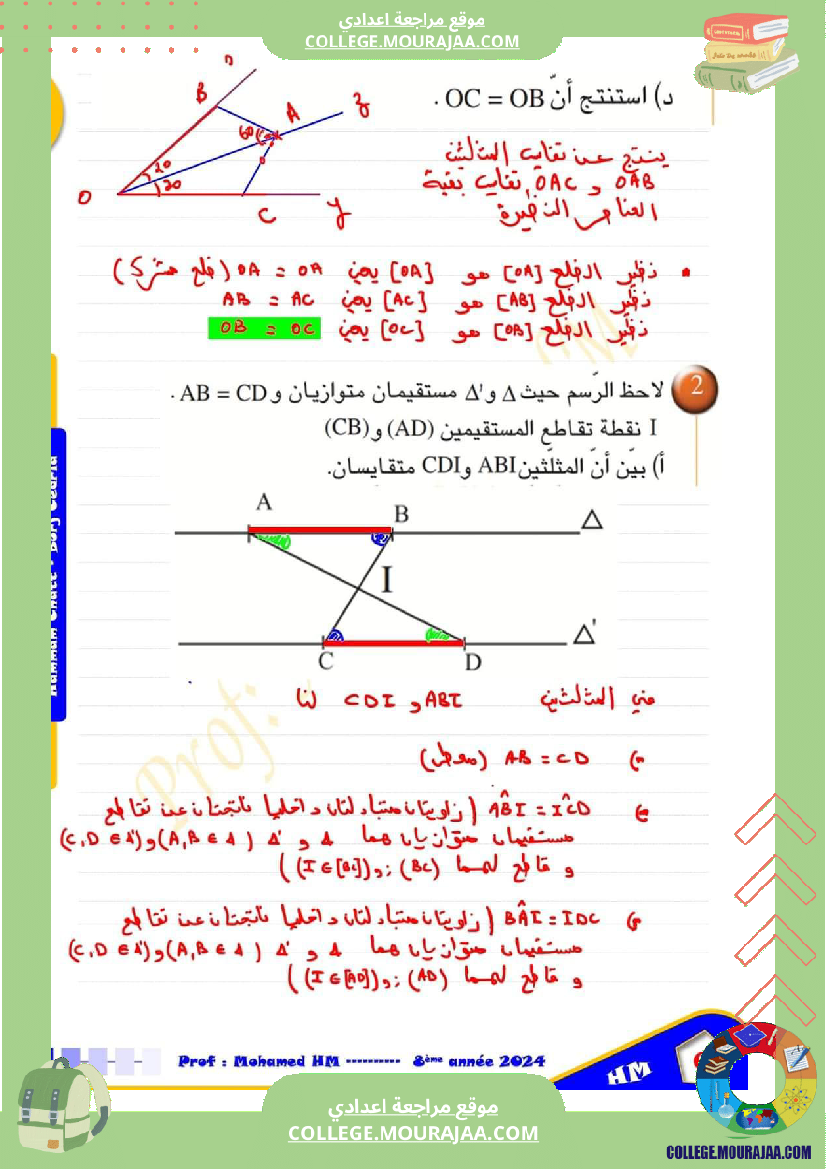 موقع مراجعة اعدادي
COLLEGE.MOURAJAA.COM
د) استنتج أنّ OC = OB .
x
B
A
z
60
20
20
O
C
y
ينتج عن تقايس المثلثين
OAB و OAC تقايس بقية
العناصر النظيرة
• نظير الضلع [OA] هو [OA] يعني OA = OA (ضلع مشترك)
نظير الضلع [AB] هو [AC] يعني AB = AC
نظير الضلع [OB] هو [OC] يعني OB = OC
2
لاحظ الرّسم حيث Δ و'Δ مستقيمان متوازيان و AB = CD .
I نقطة تقاطع المستقيمين (AD) و(CB)
أ) بيّن أنّ المثلّثين ABI و CDI متقايسان.
A
B
Δ
I
C
D
Δ'
في المثلثين ABI و CDI لنا
AB = CD (معطى)
AB̂I = IĈD (زاويتان متبادلتان داخليا ناتجتان عن تقاطع
مستقيمان متوازيان هما Δ و Δ' (A,B ∈ Δ) و(C,D ∈ Δ')
و قاطع لهما (BC) ; و(I∈[BC]))
BÂI = IDC (زاويتان متبادلتان داخليا ناتجتان عن تقاطع
مستقيمان متوازيان هما Δ و Δ' (A,B ∈ Δ) و(C,D ∈ Δ')
و قاطع لهما (AD) ; و(I∈[AD]))
Prof :
Prof : Mohamed HM ---------- 8ème année 2024
HM
موقع مراجعة اعدادي
COLLEGE.MOURAJAA.COM
COLLEGE.MOURAJAA.COM